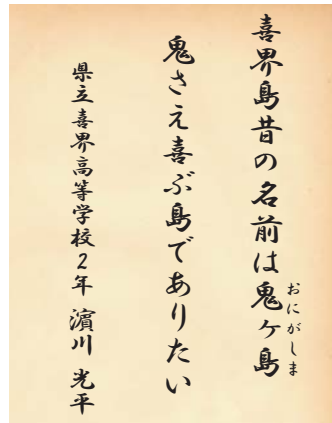 喜界島昔の名前は鬼ヶ島
おにがしま
鬼さえ喜ぶ島でありたい
県立喜界高等学校2年 濵川 光平